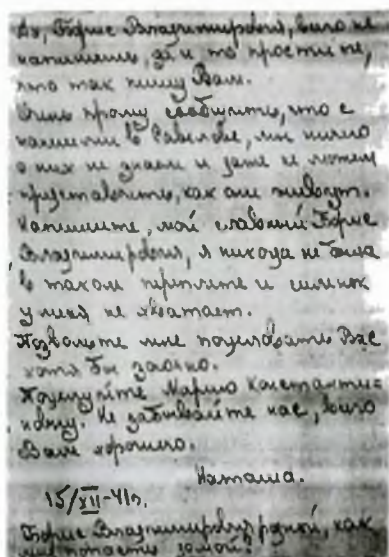 Ах, Борис Владимирович, всего не
напишешь, да и то простите,
что так пишу Вам.
Очень прошу сообщить, что с
нашими в Савёлове, мы ничего
о них не знаем и даже не можем
представить, как они живут.
Напишите, мой славный Борис
Владимирович, я никогда не была
в таком переплёте и силёнок
у меня не хватает.
Позвольте мне поцеловать Вас
хотя бы заочно.
Поцелуйте Марию Константи-
новну. Не забывайте нас, всего
Вам хорошего.
Наташа.
15/XII-41г.
Борис Владимирович, родной, как
мне попасть домой?